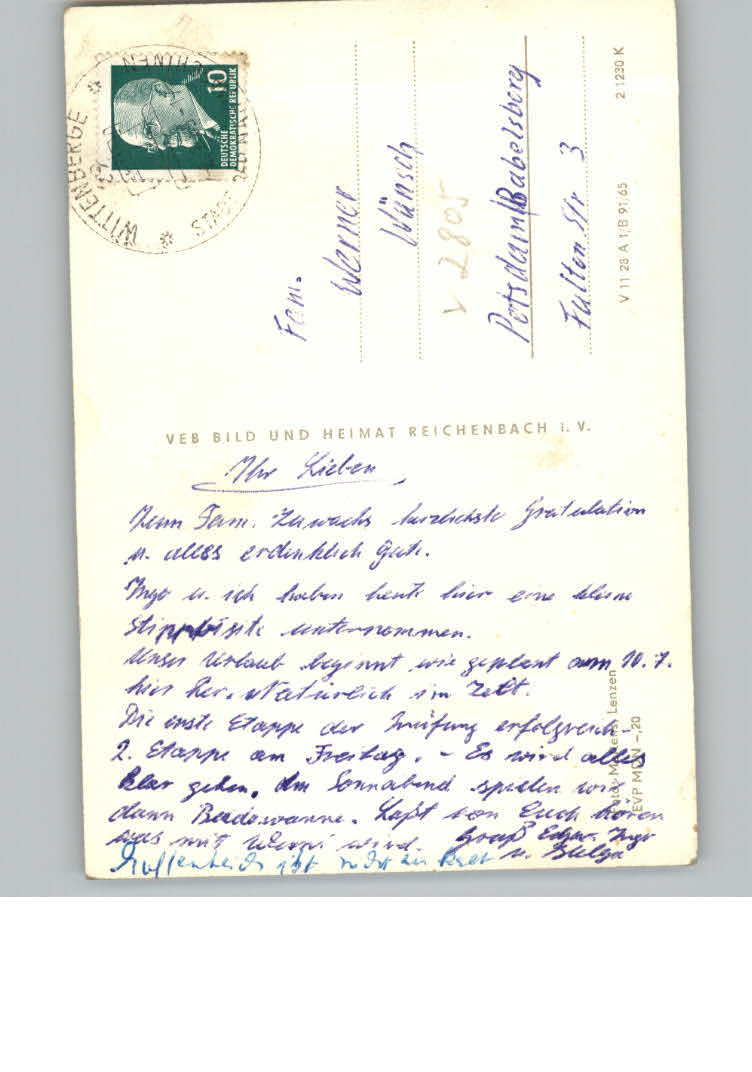 WITTENBERGE * STADT DER NÄHMASCHINEN *
10
DEUTSCHE
DEMOKRATISCHE REPUBLIK
Fam.
Werner
Wünsch
v 2805
Potsdam/Babelsberg
Fulton Str 3
V 11 28 A 1/B 91/65
2 1230 K
VEB BILD UND HEIMAT REICHENBACH i. V.
Ihr Lieben
Zum Fam. Zuwachs herzlichste Gratulation
u. alles erdenklich Gute.
Ingo u. ich haben heute hier eine kleine
Stippvisite unternommen.
Unser Urlaub beginnt wie geplant am 10.7.
hier Natürlich im Zelt.
Die erste Etappe der Prüfung erfolgreich
2. Etappe am Freitag. - Es wird alles
klar gehen. Am Sonnabend spielen wir
dann Badewanne. Laßt von Euch hören
was mit wird. Gruß Edgar, Ingo
u. Helga
Foto: Mertens, Lenzen
EVP MDN -,20